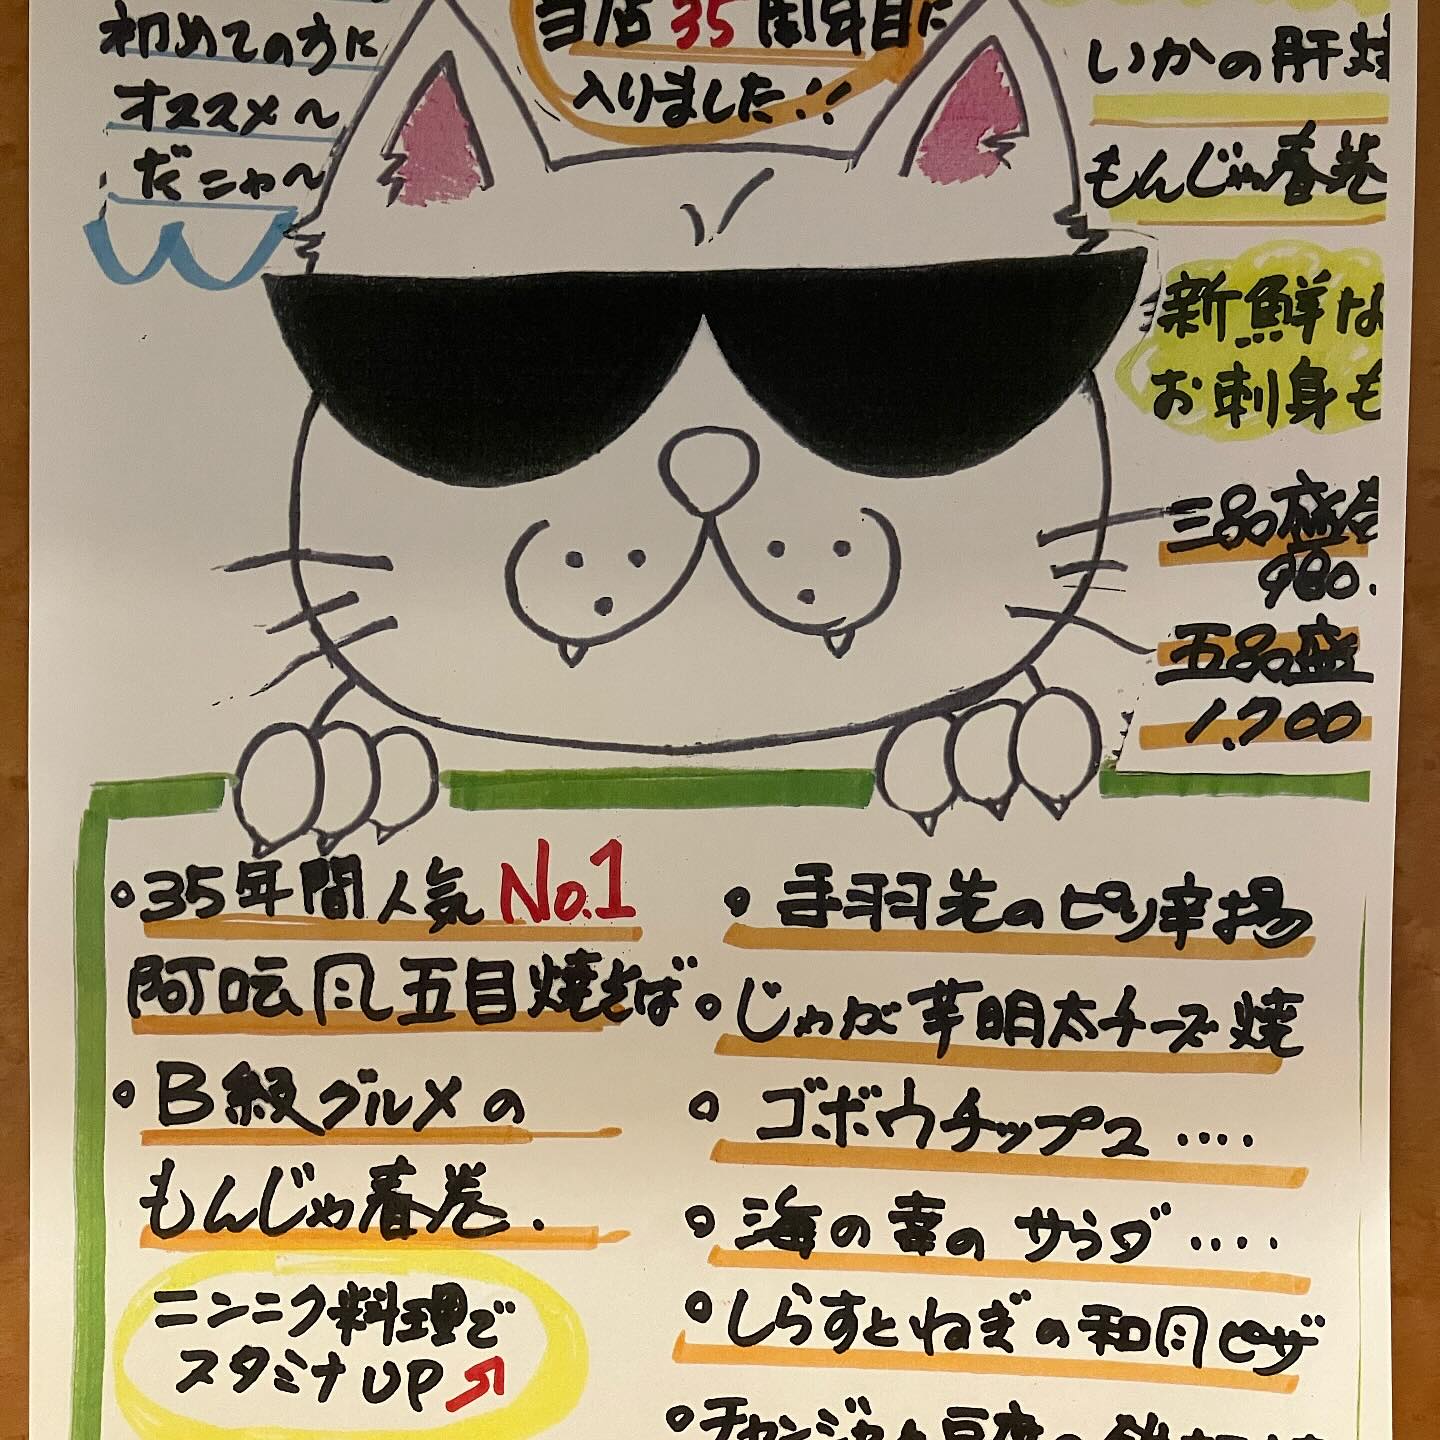 初めての方に
オススメ〜
だニャ〜
当店35周年目に
入りました!!
いかの肝焼
もんじゃ春巻
新鮮な
お刺身も
三品盛合
980.
五品盛
1,700
35年間人気No.1
阿吽風五目焼そば
B級グルメの
もんじゃ春巻.
ニンニク料理で
スタミナUP
手羽先のピリ辛揚
じゃが芋明太チーズ焼
ゴボウチップス....
海の幸のサラダ....
しらすとねぎの和風ピザ
チャンジャと豆腐の